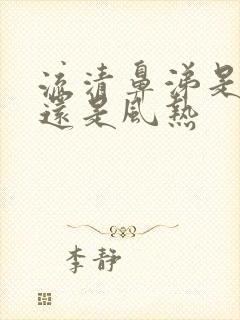 流清鼻涕是
還是風熱
李靜